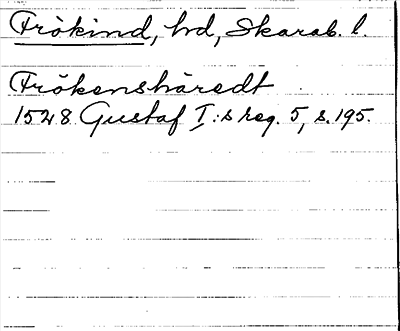 Frökind, hd, Skarab. l.
Frökenshäredt
1528 Gustaf I:s reg. 5, s. 195.